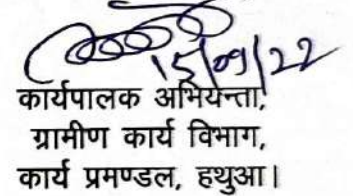 15/09/22
कार्यपालक अभियन्ता,
ग्रामीण कार्य विभाग,
कार्य प्रमण्डल, हथुआ।